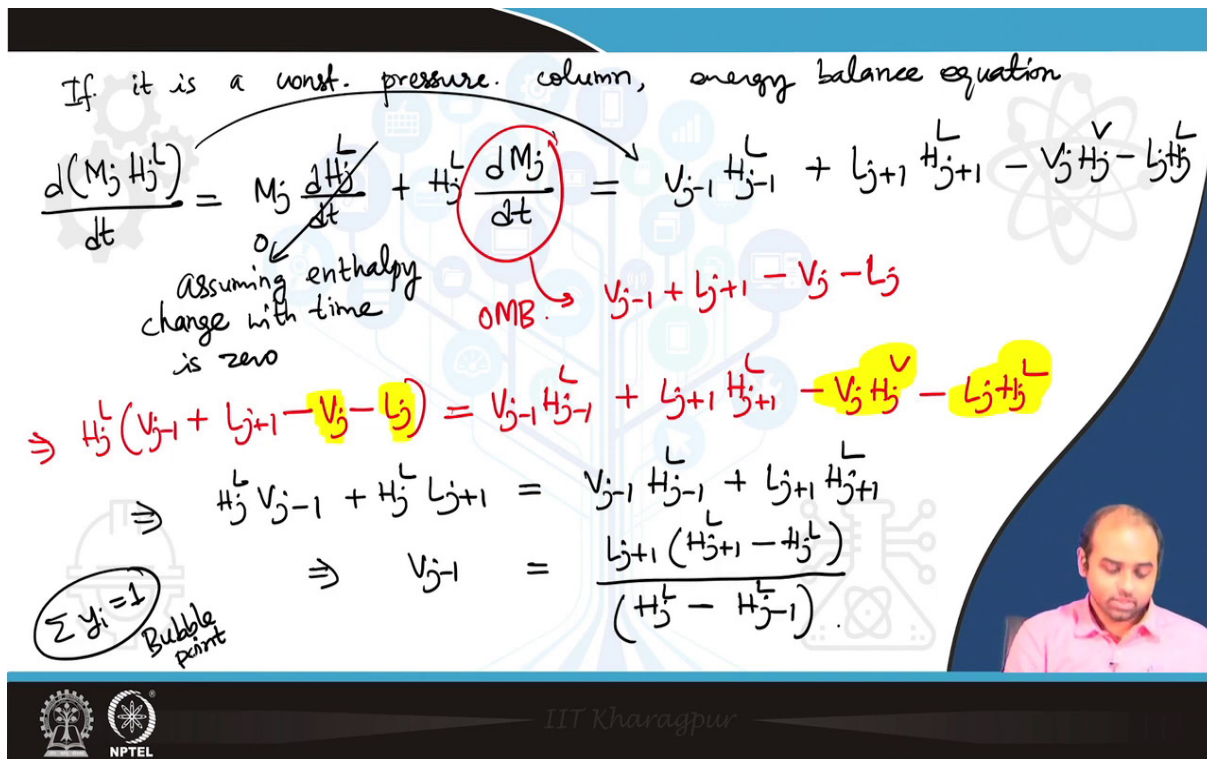 If it is a const. pressure. column, energy balance equation
d(M_j H_j^L)/dt = M_j dH_j^L/dt + H_j^L dM_j/dt = V_{j-1} H_{j-1}^L + L_{j+1} H_{j+1}^L - V_j H_j^V - L_j H_j^L
0
assuming enthalpy
change with time
is zero
OMB. → V_{j-1} + L_{j+1} - V_j - L_j
⇒ H_j^L (V_{j-1} + L_{j+1} - V_j - L_j) = V_{j-1} H_{j-1}^L + L_{j+1} H_{j+1}^L - V_j H_j^V - L_j H_j^L
⇒ H_j^L V_{j-1} + H_j^L L_{j+1} = V_{j-1} H_{j-1}^L + L_{j+1} H_{j+1}^L
⇒ V_{j-1} = L_{j+1} (H_{j+1}^L - H_j^L) / (H_j^L - H_{j-1}^L) .
Σ y_i = 1
Bubble
point
IIT Kharagpur
NPTEL